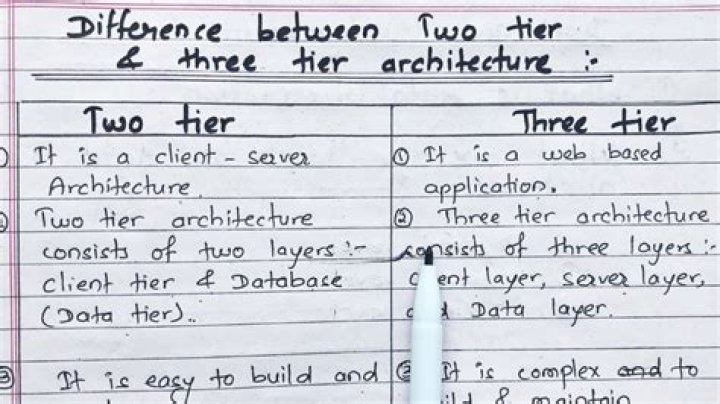 Difference between Two tier
& three tier architecture :-
Two tier
Three tier
It is a client - server
Architecture.
② Two tier architecture
consists of two layers :-
client tier & Database
(Data tier)..
③ It is easy to build and
① It is a web based
application.
② Three tier architecture
consists of three layers :-
layer, server layer,
Data layer.
It is complex and to
& maintain